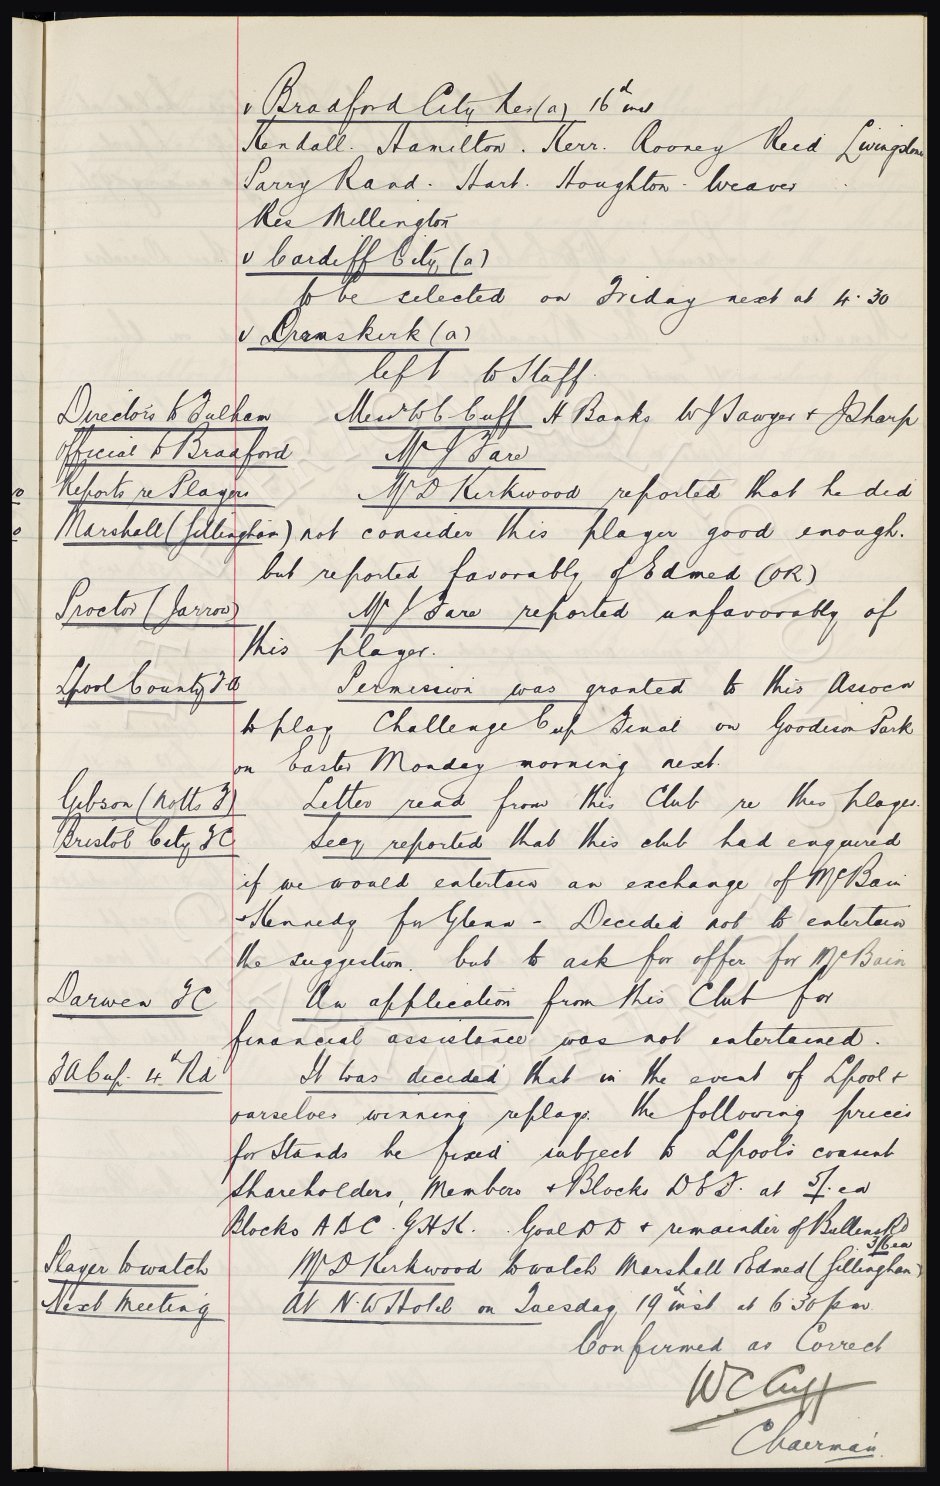 v Bradford City Res (a) 16th inst
Kendall. Hamilton. Kerr. Rooney Reid Livingstone
Parry Rand. Hart. Houghton. Weaver
Res Millington
v Cardiff City (a)
to be selected on Friday next at 4.30
v Ormskirk (a)
left to Staff.
Directors to Fulham Messrs W C Cuff H Banks W J Sawyer & J Sharp
Official to Bradford Mr J Fare
Reports re Players Mr D Kirkwood reported that he did
Marshall (Gillingham) not consider this player good enough.
but reported favorably of Edmed (OR)
Proctor (Jarrow) Mr J Fare reported unfavorably of
this player.
Lpool County F A Permission was granted to this Assocn
to play Challenge Cup Final on Goodison Park
on Easter Monday morning next.
Gibson (Notts F) Letter read from this Club re this player.
Bristol City F C Secy reported that this club had enquired
if we would entertain an exchange of McBain
& Kennedy for Glenn - Decided not to entertain
the suggestion. but to ask for offer for McBain
Darwen F C An application from this Club for
financial assistance was not entertained.
F A Cup. 4th Rd It was decided that in the event of Lpool &
ourselves winning replays. the following prices
for Stands be fixed subject to Lpool's consent
Shareholders, Members & Blocks D E F. at 5/- ea
Blocks A B C. G H K. Goal D D & remainder of Bullens Rd
3/6 ea
Player to watch Mr D Kirkwood to watch Marshall & Edmed (Gillingham)
Next Meeting At N. W Hotel on Tuesday 19th inst at 6.30 pm.
Confirmed as Correct
W C Cuff
Chairman.